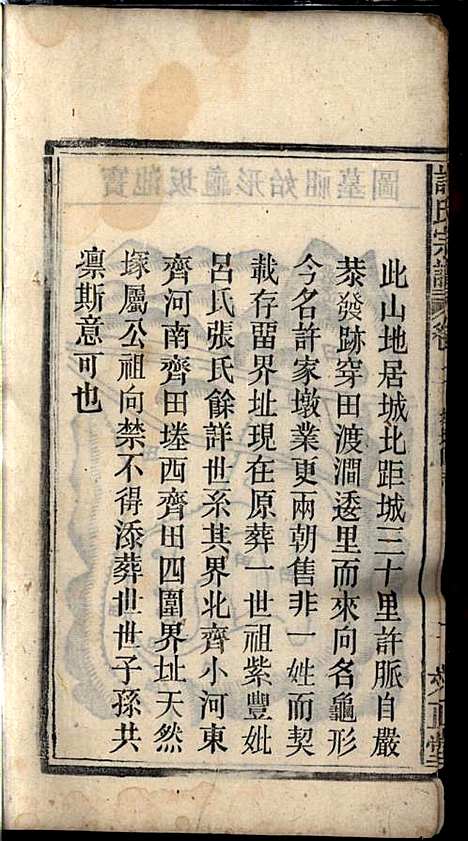 此山地居城北距城三十里許脈自嚴
恭發跡穿田渡澗逶里而來向名龜形
今名許家墩業更兩朝售非一姓而契
載存留界址現在原葬一世祖紫豐妣
呂氏張氏餘詳世系其界北齊小河東
齊河南齊田塍西齊田四圍界址天然
塚屬公祖向禁不得添葬世世子孫共
凛斯意可也
許氏宗譜
圖墓祖始形龜坂池寶